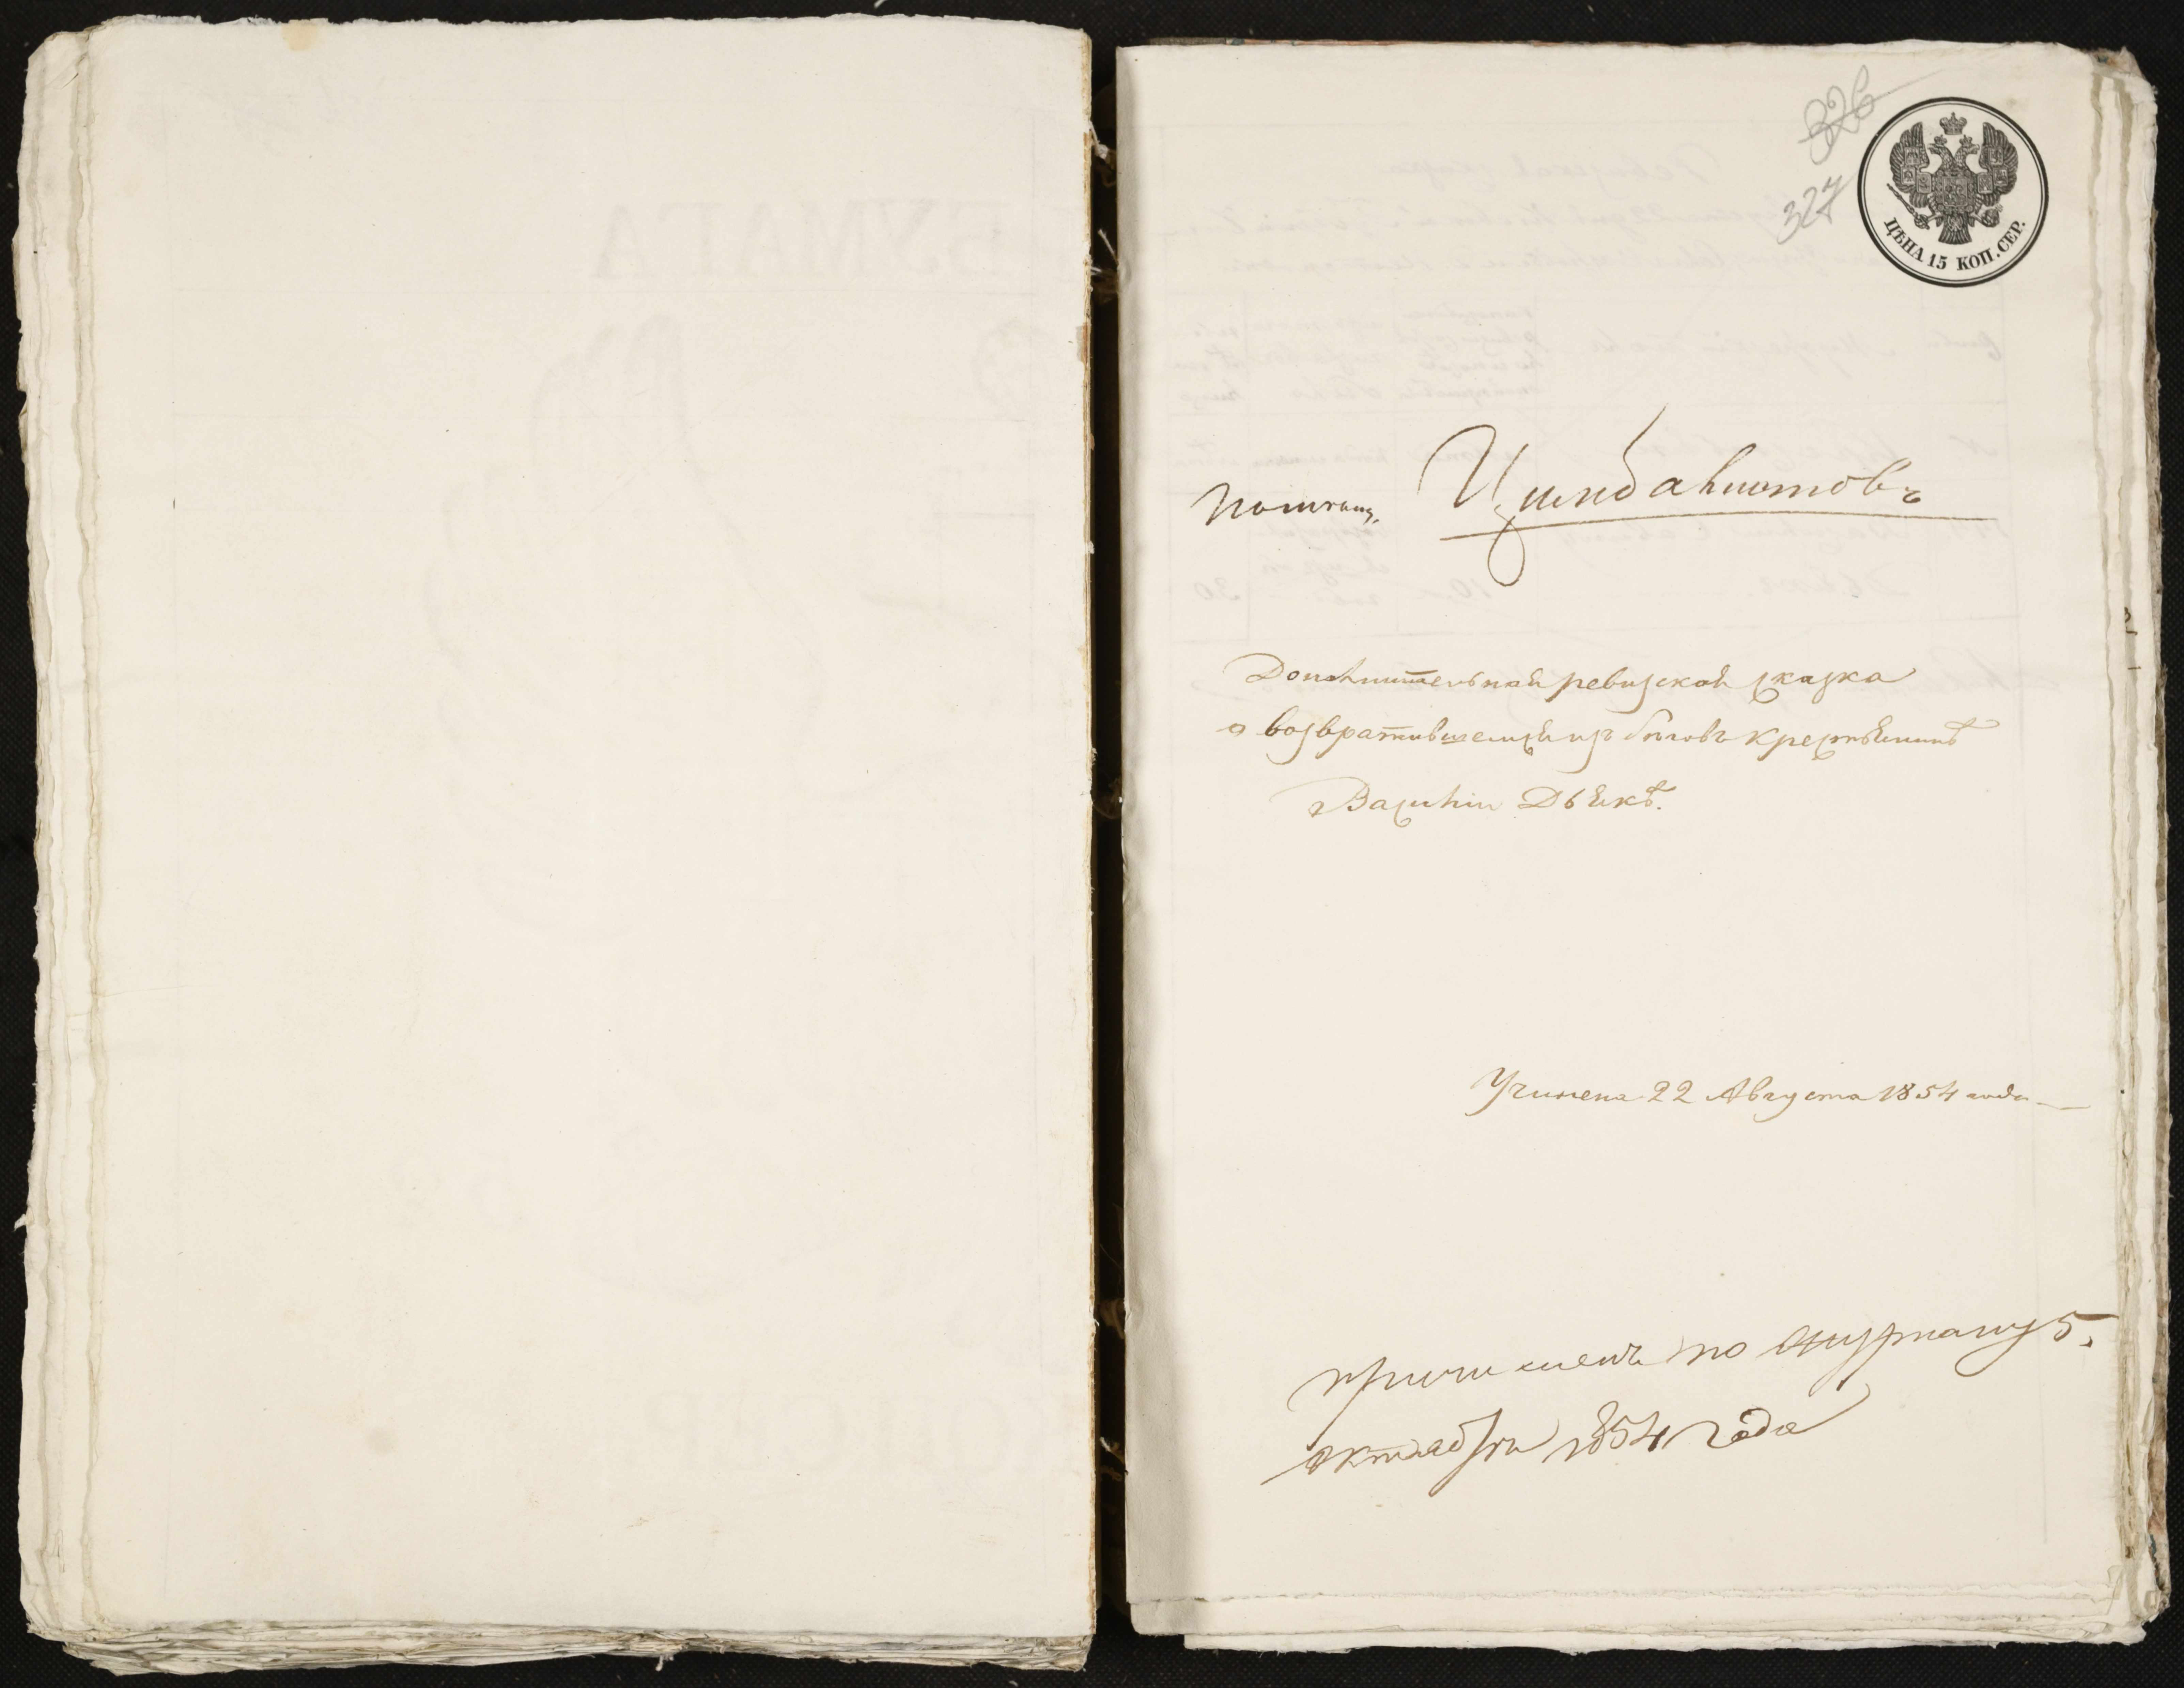 326
327
ЦѢНА 15 КОП. СЕР.
Помѣщ. Цимбалистовъ
Дополнительная ревизская сказка
о возвратившемся изъ бѣговъ крестьянинѣ
Василіи Дьякѣ.
Учинена 22 Августа 1854 года
причисленъ по журналу 5.
октября 1854 года